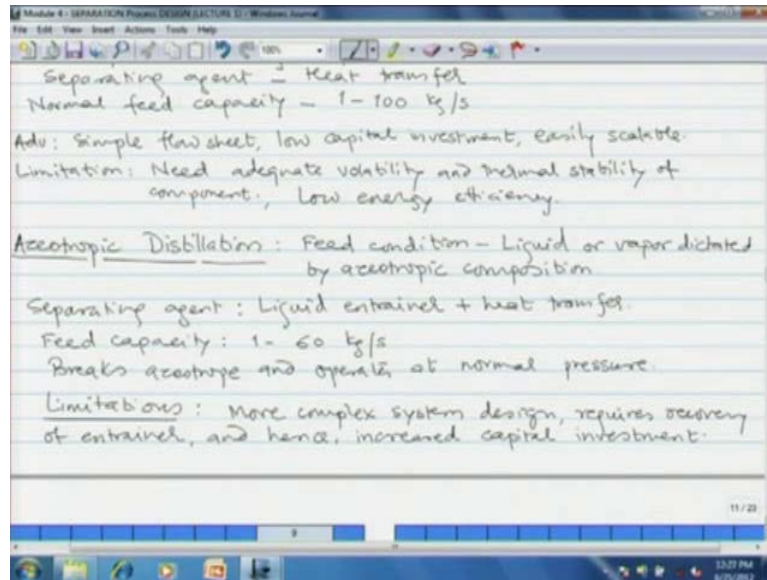 Module 4 - SEPARATION Process DESIGN (LECTURE 1) - Windows Journal
File Edit View Insert Actions Tools Help
100%
Separating agent - Heat transfer
Normal feed capacity - 1-100 kg/s
Adv: Simple flow sheet, low capital investment, easily scalable.
Limitation: Need adequate volatility and thermal stability of
component., Low energy efficiency.
Azeotropic Distillation: Feed condition - Liquid or vapor dictated
by azeotropic composition
Separating agent: Liquid entrainer + heat transfer.
Feed capacity: 1- 60 kg/s
Breaks azeotrope and operates at normal pressure.
Limitations: More complex system design, requires recovery
of entrainer, and hence, increased capital investment.
11 / 23
9
12:27 PM